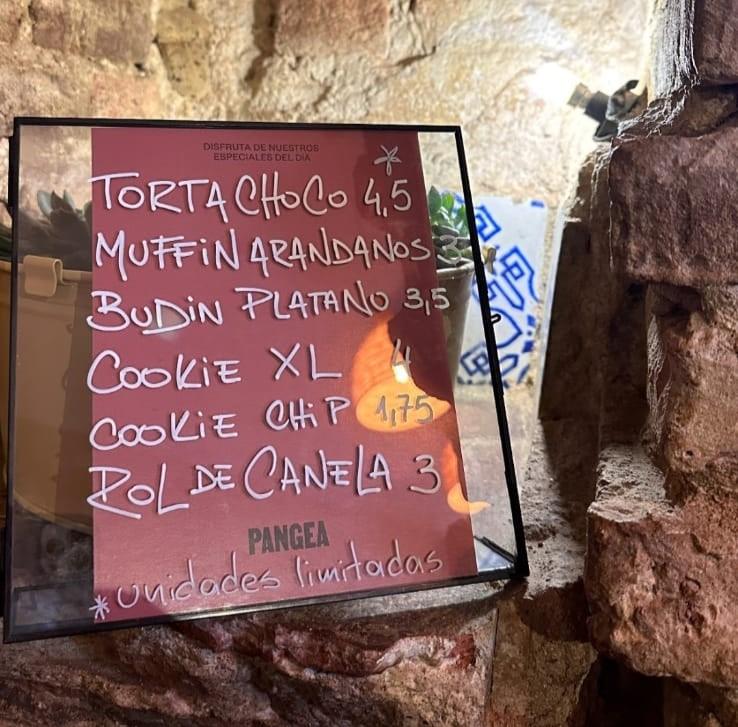 DISFRUTA DE NUESTROS
ESPECIALES DEL DÍA
*
TORTA CHOCO 4,5
MUFFIN ARANDANOS 3
BUDIN PLATANO 3,5
COOKIE XL 4
COOKIE CHIP 1,75
ROL DE CANELA 3
PANGEA
*unidades limitadas